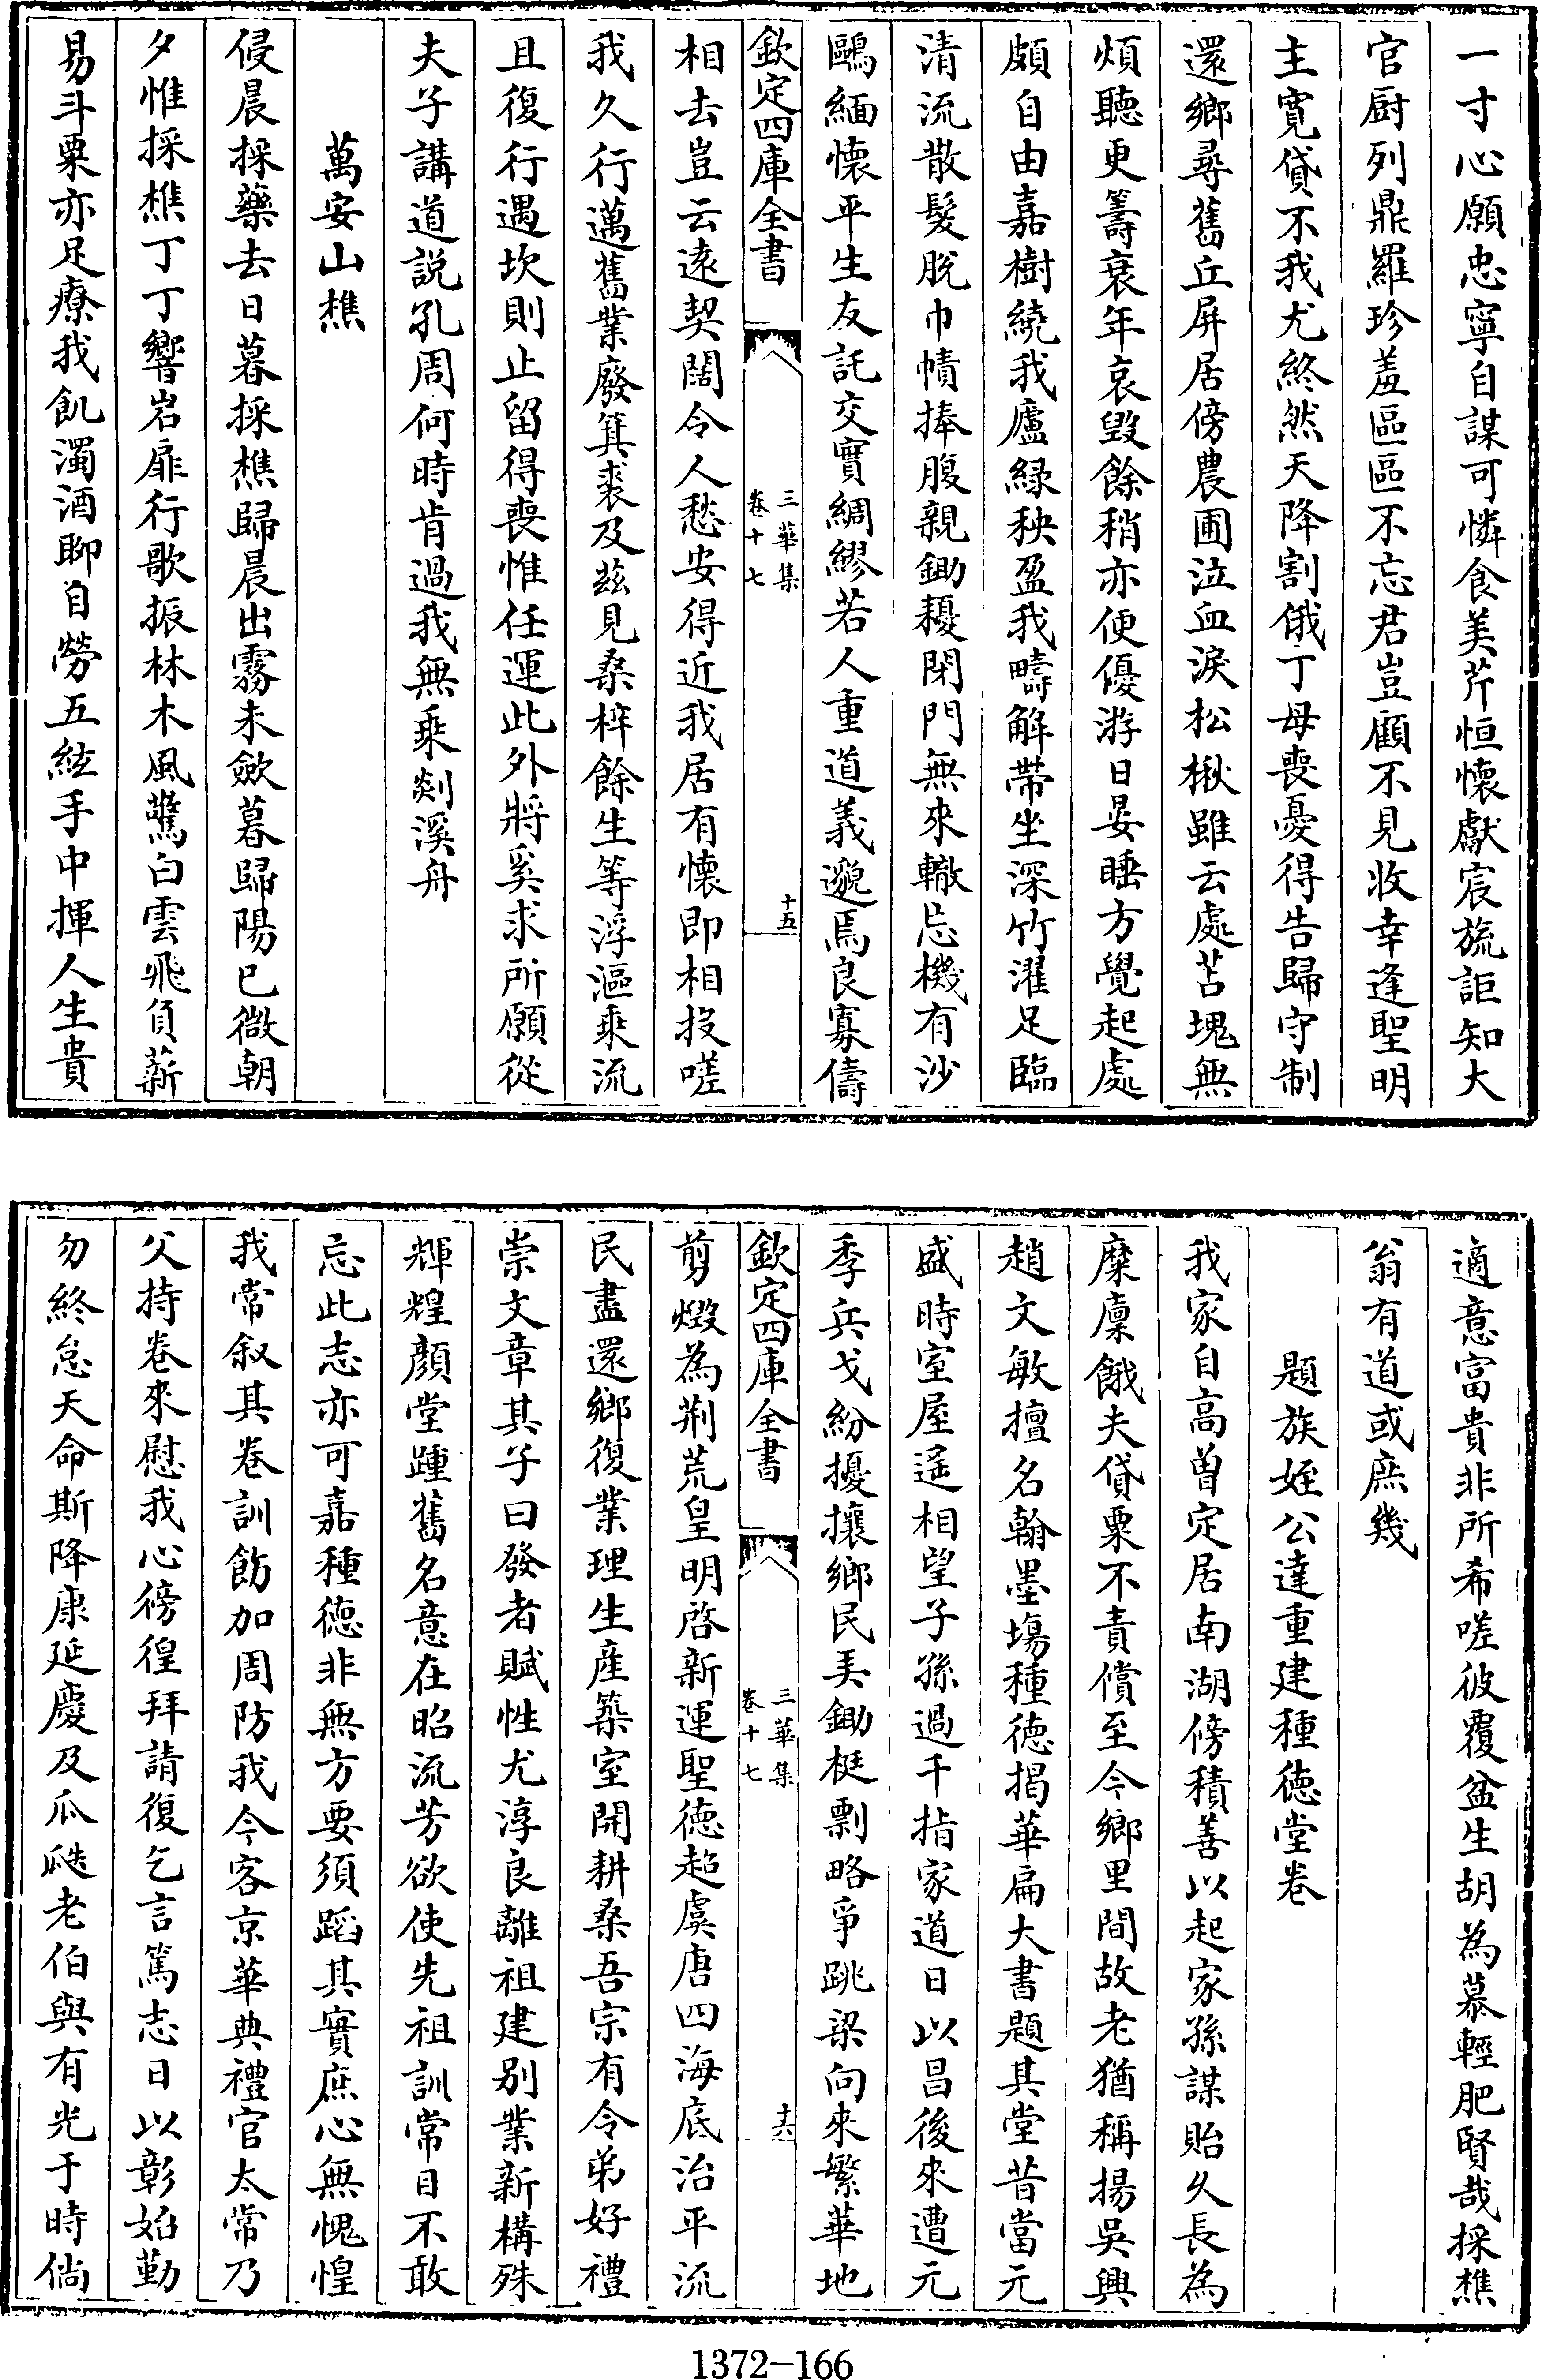 一寸心願忠寧自謀可憐食美芹恒懷獻宸旒詎知大
官厨列鼎羅珍羞區區不忘君豈顧不見收幸逢聖明
主寛貸不我尤終然天降割俄丁母喪憂得告歸守制
還鄉尋舊丘屏居傍農圃泣血淚松楸雖云處苫塊無
煩聽更籌衰年哀毁餘稍亦便優游日晏睡方覺起處
頗自由嘉樹繞我廬緑秧盈我疇解帶坐深竹濯足臨
清流散髮脱巾幘捧腹親鋤耰閉門無來轍忘機有沙
鷗緬懷平生友託交實綢繆若人重道義邈焉良寡儔
欽定四庫全書
三華集
卷十七
十五
相去豈云遠契闊令人愁安得近我居有懷即相投嗟
我久行邁舊業廢箕裘及兹見桑梓餘生等浮漚乘流
且復行遇坎則止留得喪惟任運此外將奚求所願從
夫子講道説孔周何時肯過我無乘剡溪舟
萬安山樵
侵晨採藥去日暮採樵歸晨出霧未斂暮歸陽已微朝
夕惟採樵丁丁響岩扉行歌振林木風驚白雲飛負薪
易斗粟亦足療我飢濁酒聊自勞五絃手中揮人生貴
適意富貴非所希嗟彼覆盆生胡為慕輕肥賢哉採樵
翁有道或庶幾
題族姪公達重建種徳堂卷
我家自高曽定居南湖傍積善以起家孫謀貽久長為
糜廩餓夫貸粟不責償至今鄉里間故老猶稱揚吳興
趙文敏擅名翰墨塲種徳揭華扁大書題其堂昔當元
盛時室屋遙相望子孫過千指家道日以昌後來遭元
季兵戈紛擾攘鄉民弄鋤梃剽略爭跳梁向來繁華地
欽定四庫全書
三華集
卷十七
十六
剪燬為荆荒皇明啓新運聖徳超虞唐四海底治平流
民盡還鄉復業理生産築室開耕桑吾宗有令弟好禮
崇文章其子曰發者賦性尤淳良離祖建别業新構殊
輝煌顔堂踵舊名意在昭流芳欲使先祖訓常目不敢
忘此志亦可嘉種徳非無方要須蹈其實庶心無愧惶
我常叙其卷訓飭加周防我今客京華典禮官太常乃
父持卷來慰我心徬徨拜請復乞言篤志日以彰始勤
勿終怠天命斯降康延慶及瓜瓞老伯與有光于時倘
1372-166